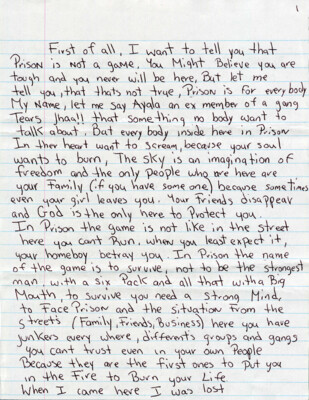 1
First of all, I want to tell you that
Prison is not a game, you Might Believe you are
tough and you never will be here, But let me
tell you, that thats not true, Prison is for every body
My Name, let me say Ayala an ex member of a gang
Tears Jhaa!! that something no body want to
talk about, But every body inside here in Prison
In ther heart want to scream, because your soul
wants to burn, The sky is an imagination of
freedom and the only people who are here are
your Family (if you have some one) because some times
even your girl leaves you. Your friends disappear
and God is the only here to Protect you.
In Prison the game is not like in the street
here you cant Run, when you least expect it,
your homeboy betray you. In Prison the name
of the game is to survive, not to be the strongest
man, with a six Pack and all that with a Big
Mouth, to survive you need a strong Mind,
to Face Prison and the situation from the
streets (Family, Friends, Business) here you have
junkers every where, differents groups and gangs
you cant trust even in your own People
Because they are the first ones to Put you
in the Fire to Burn your Life
When I came here I was lost